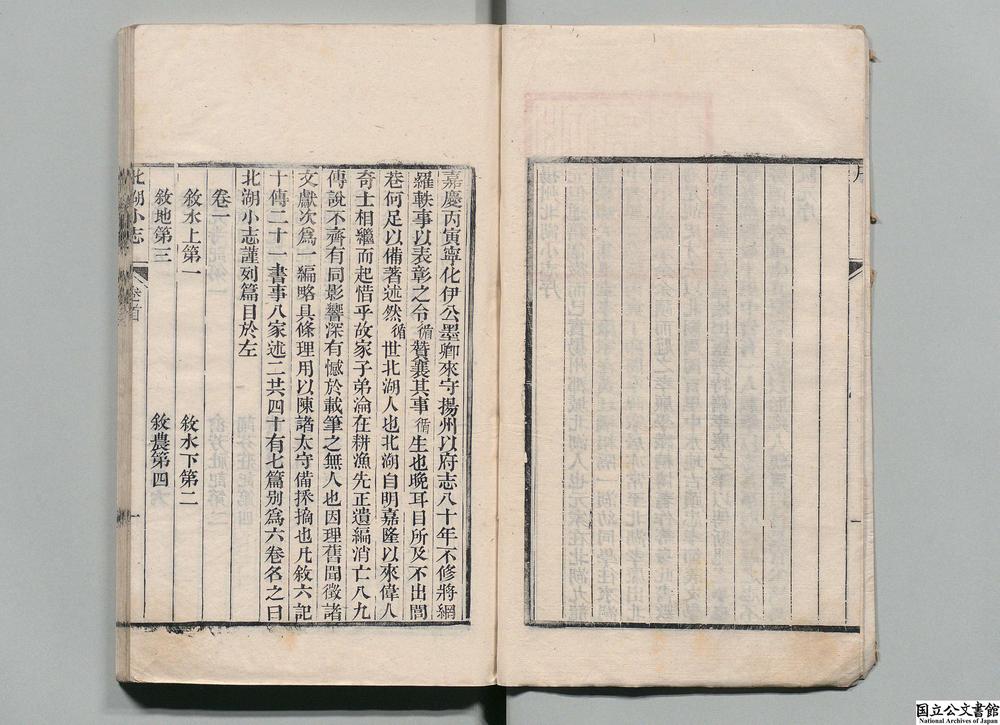 序
一
嘉慶丙寅寧化伊公墨卿來守揚州以府志八十年不修將網
羅軼事以表彰之令循贊襄其事循生也晚耳目所及不出閭
巷何足以備著述然循世北湖人也北湖自明嘉隆以來偉人
奇士相繼而起惜乎故家子弟淪在耕漁先正遺編消亡八九
傳說不齊有同影響深有憾於載筆之無人也因理舊聞徵諸
文獻次爲一編略具條理用以陳諸太守備採擿也凡敘六記
十傳二十一書事八家述二共四十有七篇別爲六卷名之曰
北湖小志謹列篇目於左
卷一
敘水上第一
敘水下第二
敘地第三
敘農第四
北湖小志
卷首
一
国立公文書館
National Archives of Japan